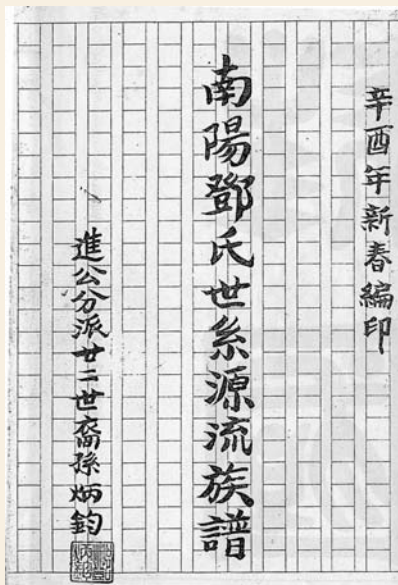 辛酉年新春編印
南陽鄧氏世系源流族譜
進公分派廿二世裔孫炳鈞